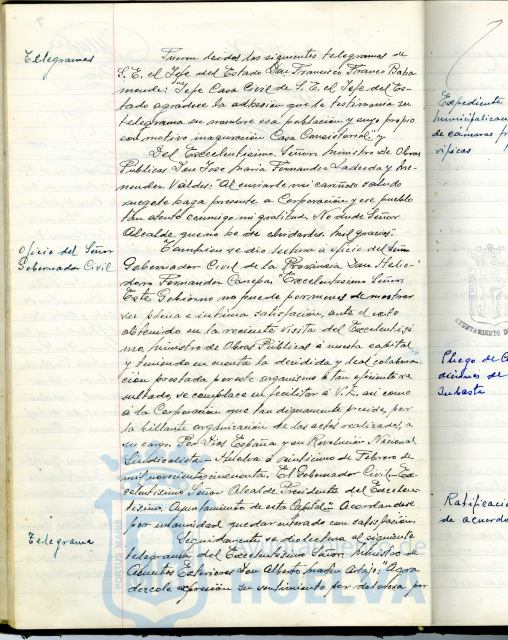 Telegramas
Fueron leidos los siguientes telegramas de
S. E. el Jefe del Estado Don Francisco Franco Baha
monde: "Jefe Casa Civil de S. E. el Jefe del Es-
tado agradece la adhesión que le testimonia su
telegrama en nombre esa población y suyo propio
con motivo inauguración Casa Consistorial" y
Del Excelentisimo Señor Ministro de Obras
Públicas Don Jose Maria Fernandez Ladreda y Me-
nendez Valdes: "Al enviarle mi cariñoso saludo
ruegole haga presente a Corporación y ese pueblo
tan atento conmigo mi gratitud. No dude Señor
Alcalde que no he de olvidarles. Mil gracias."
Oficio del Señor
Gobernador Civil
Tambien se dio lectura a oficio del Señor
Gobernador Civil de la Provincia Don Helio-
doro Fernandez Canepa: "Excelentisimo Señor
Este Gobierno no puede por menos de mostrar
su plena e intima satisfacción, ante el exito
obtenido en la reciente visita del Excelentisi
mo, Ministro de Obras Públicas á nuestra capital
y teniendo en cuenta la decidida y leal colabora
ción prestada por este organismo á tan eficiente re
sultado, se complace en felicitar á V. E. asi como
á la Corporación que tan dignamente preside, por
la brillante organización de los actos realizados, a
su cargo. Por Dios España y su Revolución Nacional
Sindicalista - Huelva á veintiuno de Febrero de
mil novecientos cincuenta. El Gobernador Civil - Ex-
celentisimo Señor Alcalde Presidente del Excelen-
tisimo Ayuntamiento de esta Capital". Acordandose
por unanimidad quedar enterado con satisfacción.
Telegrama
Seguidamente se dio lectura al siguiente
telegrama del Excelentisimo Señor Ministro de
Asuntos Exteriores Don Alberto Martin Artajo: "Agra
dezcole expresión su sentimiento por dolorosa per
Expediente
municipalizac
de cámaras fr
rificas
AYUNTAMIENTO D
Pliego de C
diciones de
Subasta
Ratificació
de acuerdo
PORTUS MARIS
HUELVA